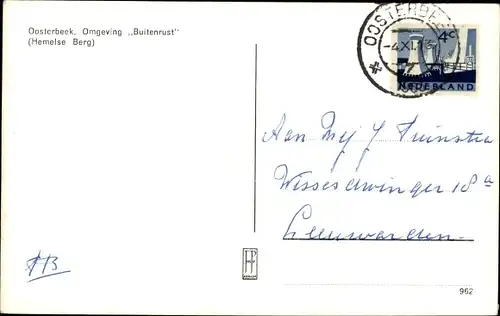 Oosterbeek, Omgeving „Buitenrust"
(Hemelse Berg)
OOSTERBEEK
-4.XI.
4c
NEDERLAND
Aan Mej J Tuinstra
Wissesdwinger 18a
Leeuwarden.
HB
962